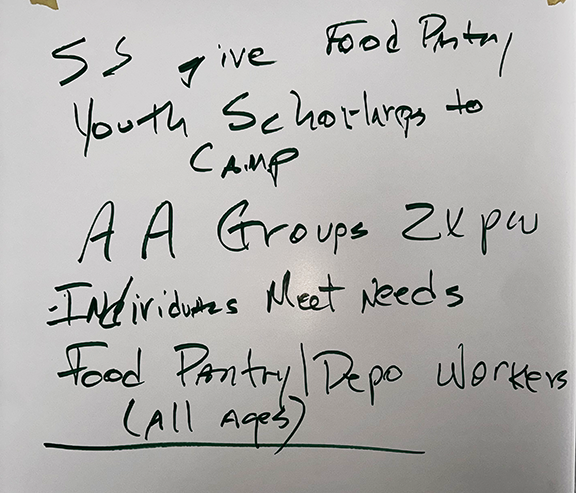 SS give Food Pantry
Youth Scholarips to
Camp
AA Groups 2x pw
Individuals Meet Needs
Food Pantry/Depo Workers
(All Ages)